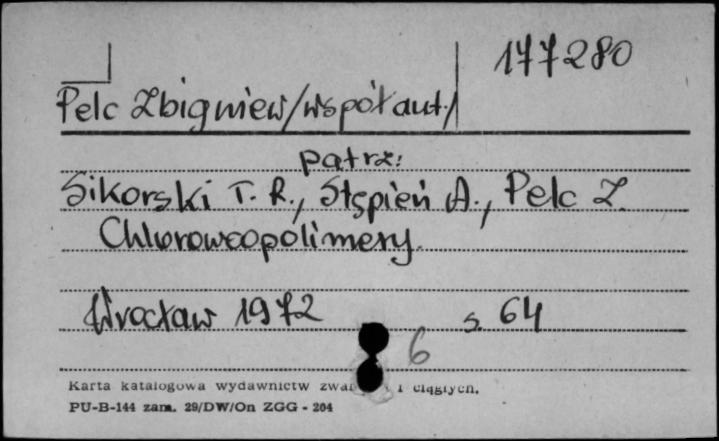 177280
Pelc Zbigniew/współaut./
patrz:
Sikorski T. R., Stępień A., Pelc Z.
Chlorowcopolimery.
Wrocław 1972 s. 64
6
Karta katalogowa wydawnictw i ciągłych.
PU-B-144 zam. 29/DW/On ZGG - 204